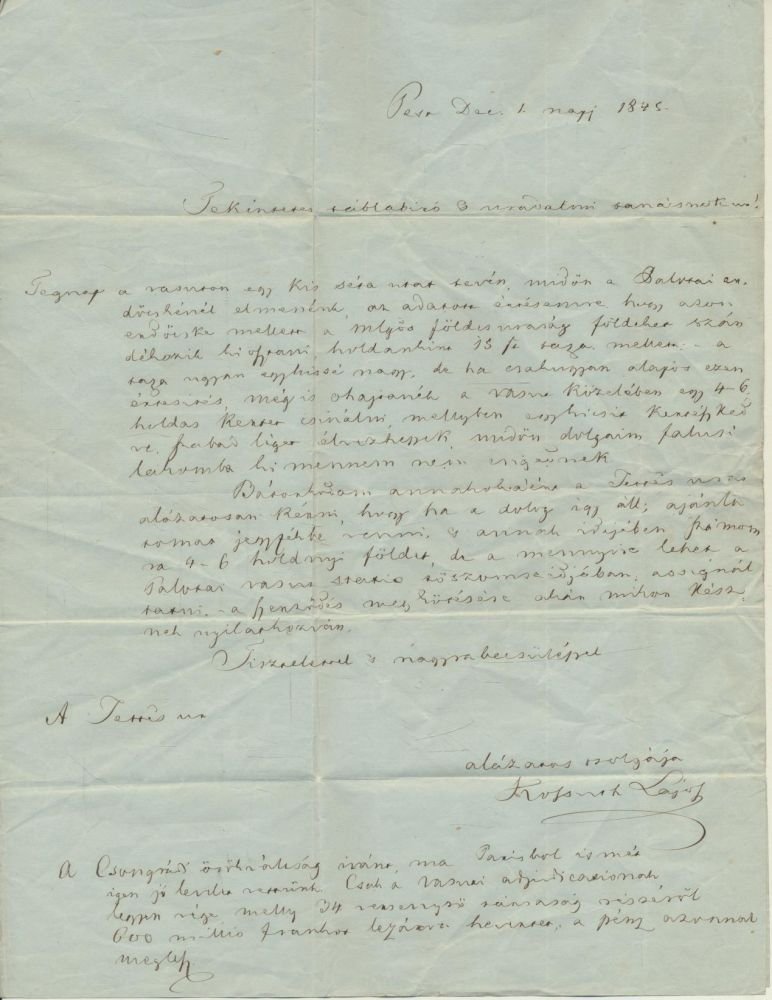 Pest Dec. 1 napj 1845.
Tekintetes táblabiró s uradalmi tanácsnok ur!
Tegnap a vasuton egy kis séta utat tevén, midőn a Palotai er,
dőcskénél elmenénk, az adatott értésemre hogy azon
erdőcske mellett a Mlgos földesuraság földeket szán
dékozik kiosztani, holdankint 15 ft taxa mellett: - a
taxa ugyan egykissé nagy, de ha csakugyan alapos ezen
értesités, még is ohajtanék a vasut közelében egy 4-6
holdas kertet csinálni, mellyben egykicsit kertészked
ve, szabad léget élvezhessek, midőn dolgaim falusi
lakomba ki mennem nem engednek
Bátorkodom annakokáért a Tettes urat
alázatosan kérni, hogy ha a dolog igy áll; ajánla
tomat jegyzékbe venni, s annak idejében számom
ra 4-6 holdnyi földet, de a mennyire lehet a
Palotai vasut statio tőszomszédjában, assignál
tatni. - a szerződés megkötésére akár mikor kész,
nek nyilatkozván.
Tisztelettel s nagyrabecsüléssel
A Tettes ur
alázatos szolgája
Kossuth Lajos
A Csongrádi örökváltság iránt, ma Parisbol ismét
igen jó levelet vettünk. Csak a vasuti adjudicationak
legyen vége, melly 34 versenyző társaság részéről
600 millio frankot lezárva hevertet, a pénz azonnal
meglesz.